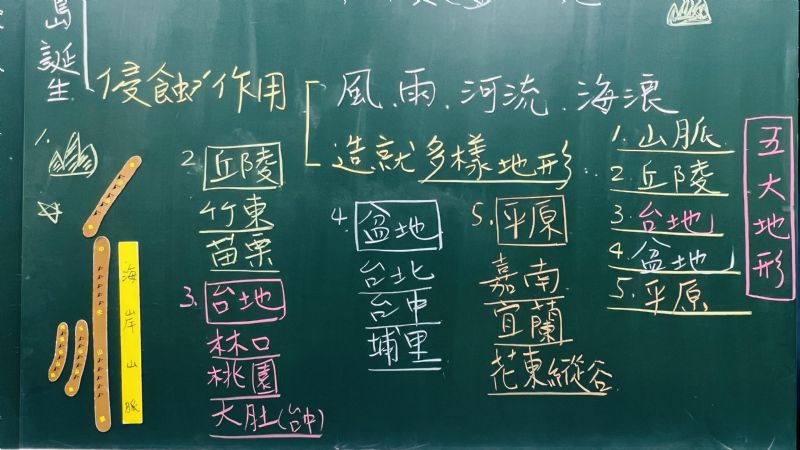 島誕生
侵蝕作用
風.雨.河流.海浪
造就多樣地形
1.
海岸山脈
2.丘陵
竹東
苗栗
3.台地
林口
桃園
大肚(台中)
4.盆地
台北
台中
埔里
5.平原
嘉南
宜蘭
花東縱谷
五大地形
1.山脈
2.丘陵
3.台地
4.盆地
5.平原